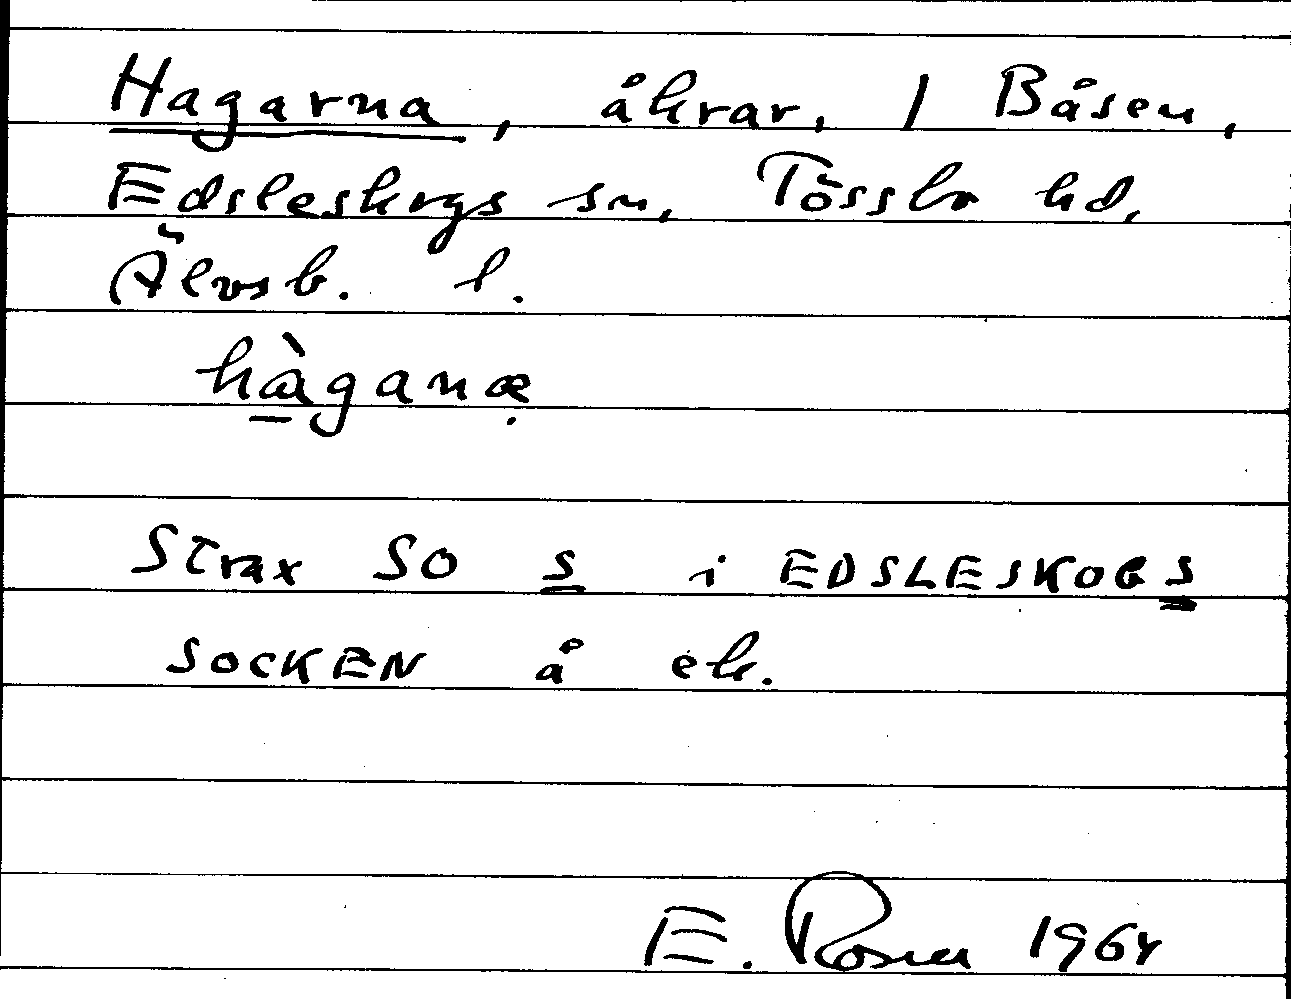 Hagarna, åkrar, 1 Båsen,
Edsleskogs sn, Tössbo hd,
Älvsb. l.
hàganæ
Strax SO s i EDSLESKOGS
SOCKEN å ek.
E. Rosell 1964